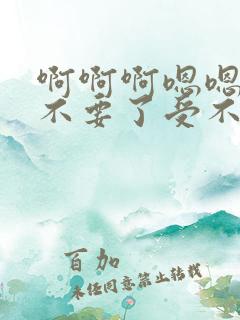 啊啊啊嗯嗯
不要了受不
百加
未经同意禁止转载